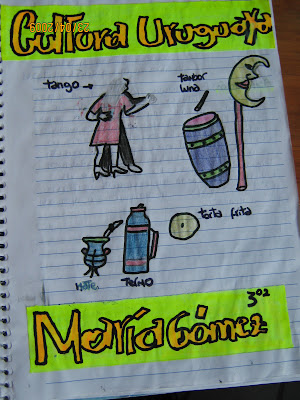 Cultura Uruguaya
tango
tambor
luna
torta frita
Mate
Termo
3º2
María Gómez